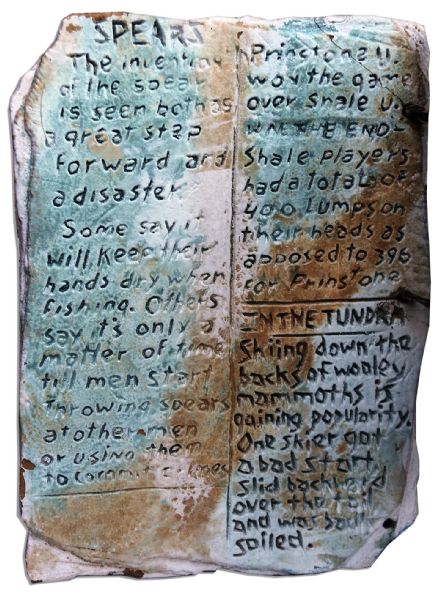 SPEARS
The invention
of the spear
is seen both as
a great step
forward and
a disaster.
Some say it
will keep their
hands dry when
fishing. Others
say it's only a
matter of time
till men start
throwing spears
at other men
or using them
to commit crimes
Prinstone U.
won the game
over Shale U.
IN THE END
Shale players
had a total of
400 lumps on
their heads as
apposed to 396
for Prinstone
IN THE TUNDRA
Skiing down the
backs of wooley
mammoths is
gaining popularity.
One skier got
a bad start
slid backward
over the tail
and was badly
soiled.